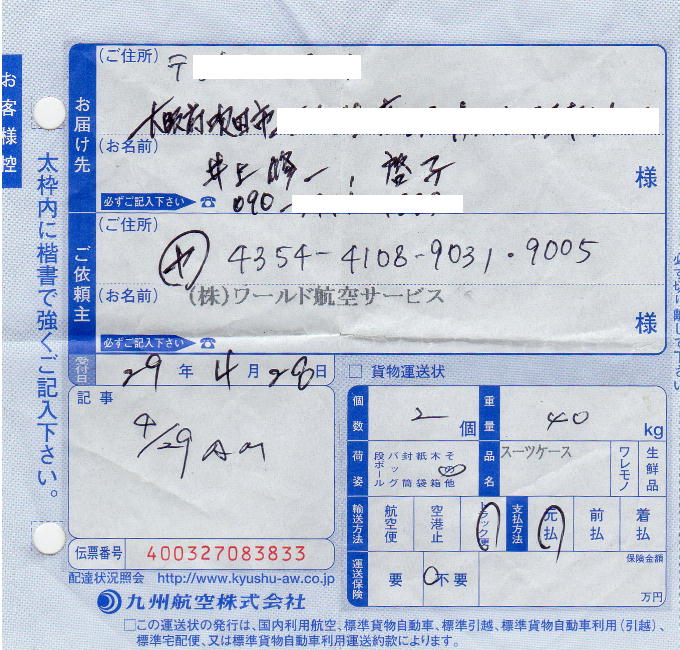 お客様控
太枠内に楷書で強くご記入下さい。
お届け先
(ご住所) 〒
大阪府吹田市
(お名前)
井上 修一, 啓子 様
必ずご記入下さい ☎ 090-
ご依頼主
(ご住所)
ヤ 4354-4108-9031・9005
(お名前) (株)ワールド航空サービス
様
必ずご記入下さい ☎
受付日 29年 4月 28日
□ 貨物運送状
記事
4/29 AM
個数 2 個 重量 40 kg
荷姿 段ボール バッグ 封筒 紙袋 木箱 その他 品名 スーツケース ワレモノ 生鮮品
輸送方法 航空便 空港止 トラック便 支払方法 元払 前払 着払
運送保険 要 不要 保険金額 万円
伝票番号 400327083833
配達状況照会 http://www.kyushu-aw.co.jp
九州航空株式会社
□この運送状の発行は、国内利用航空、標準貨物自動車、標準引越、標準貨物自動車利用(引越)、
標準宅配便、又は標準貨物自動車利用運送約款によります。